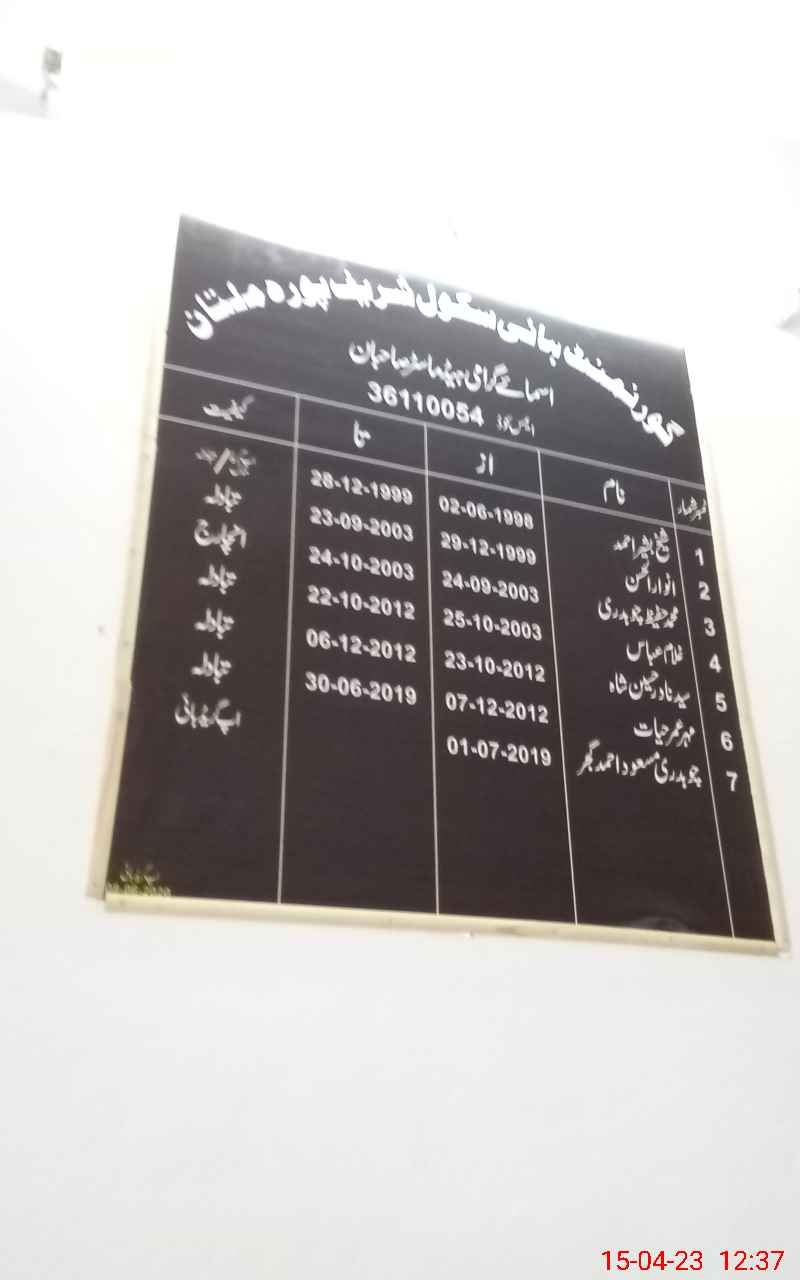 گورنمنٹ ہائی سکول شریف پورہ ملتان
اسمائے گرامی ہیڈ ماسٹر صاحبان
ایمس کوڈ 36110054
نمبر شمار نام از تا کیفیت
1 شیخ بشیر احمد 02-06-1998 28-12-1999
2 انوار الحسن 29-12-1999 23-09-2003 تبادلہ
3 محمد حفیظ چوہدری 24-09-2003 24-10-2003 انچارج
4 غلام عباس 25-10-2003 22-10-2012 تبادلہ
5 سید نادر حسین شاہ 23-10-2012 06-12-2012 تبادلہ
6 مہر عمر حیات 07-12-2012 30-06-2019 تبادلہ
7 چوہدری مسعود احمد گجر 01-07-2019 اپ گریڈ ہائی
15-04-23 12:37